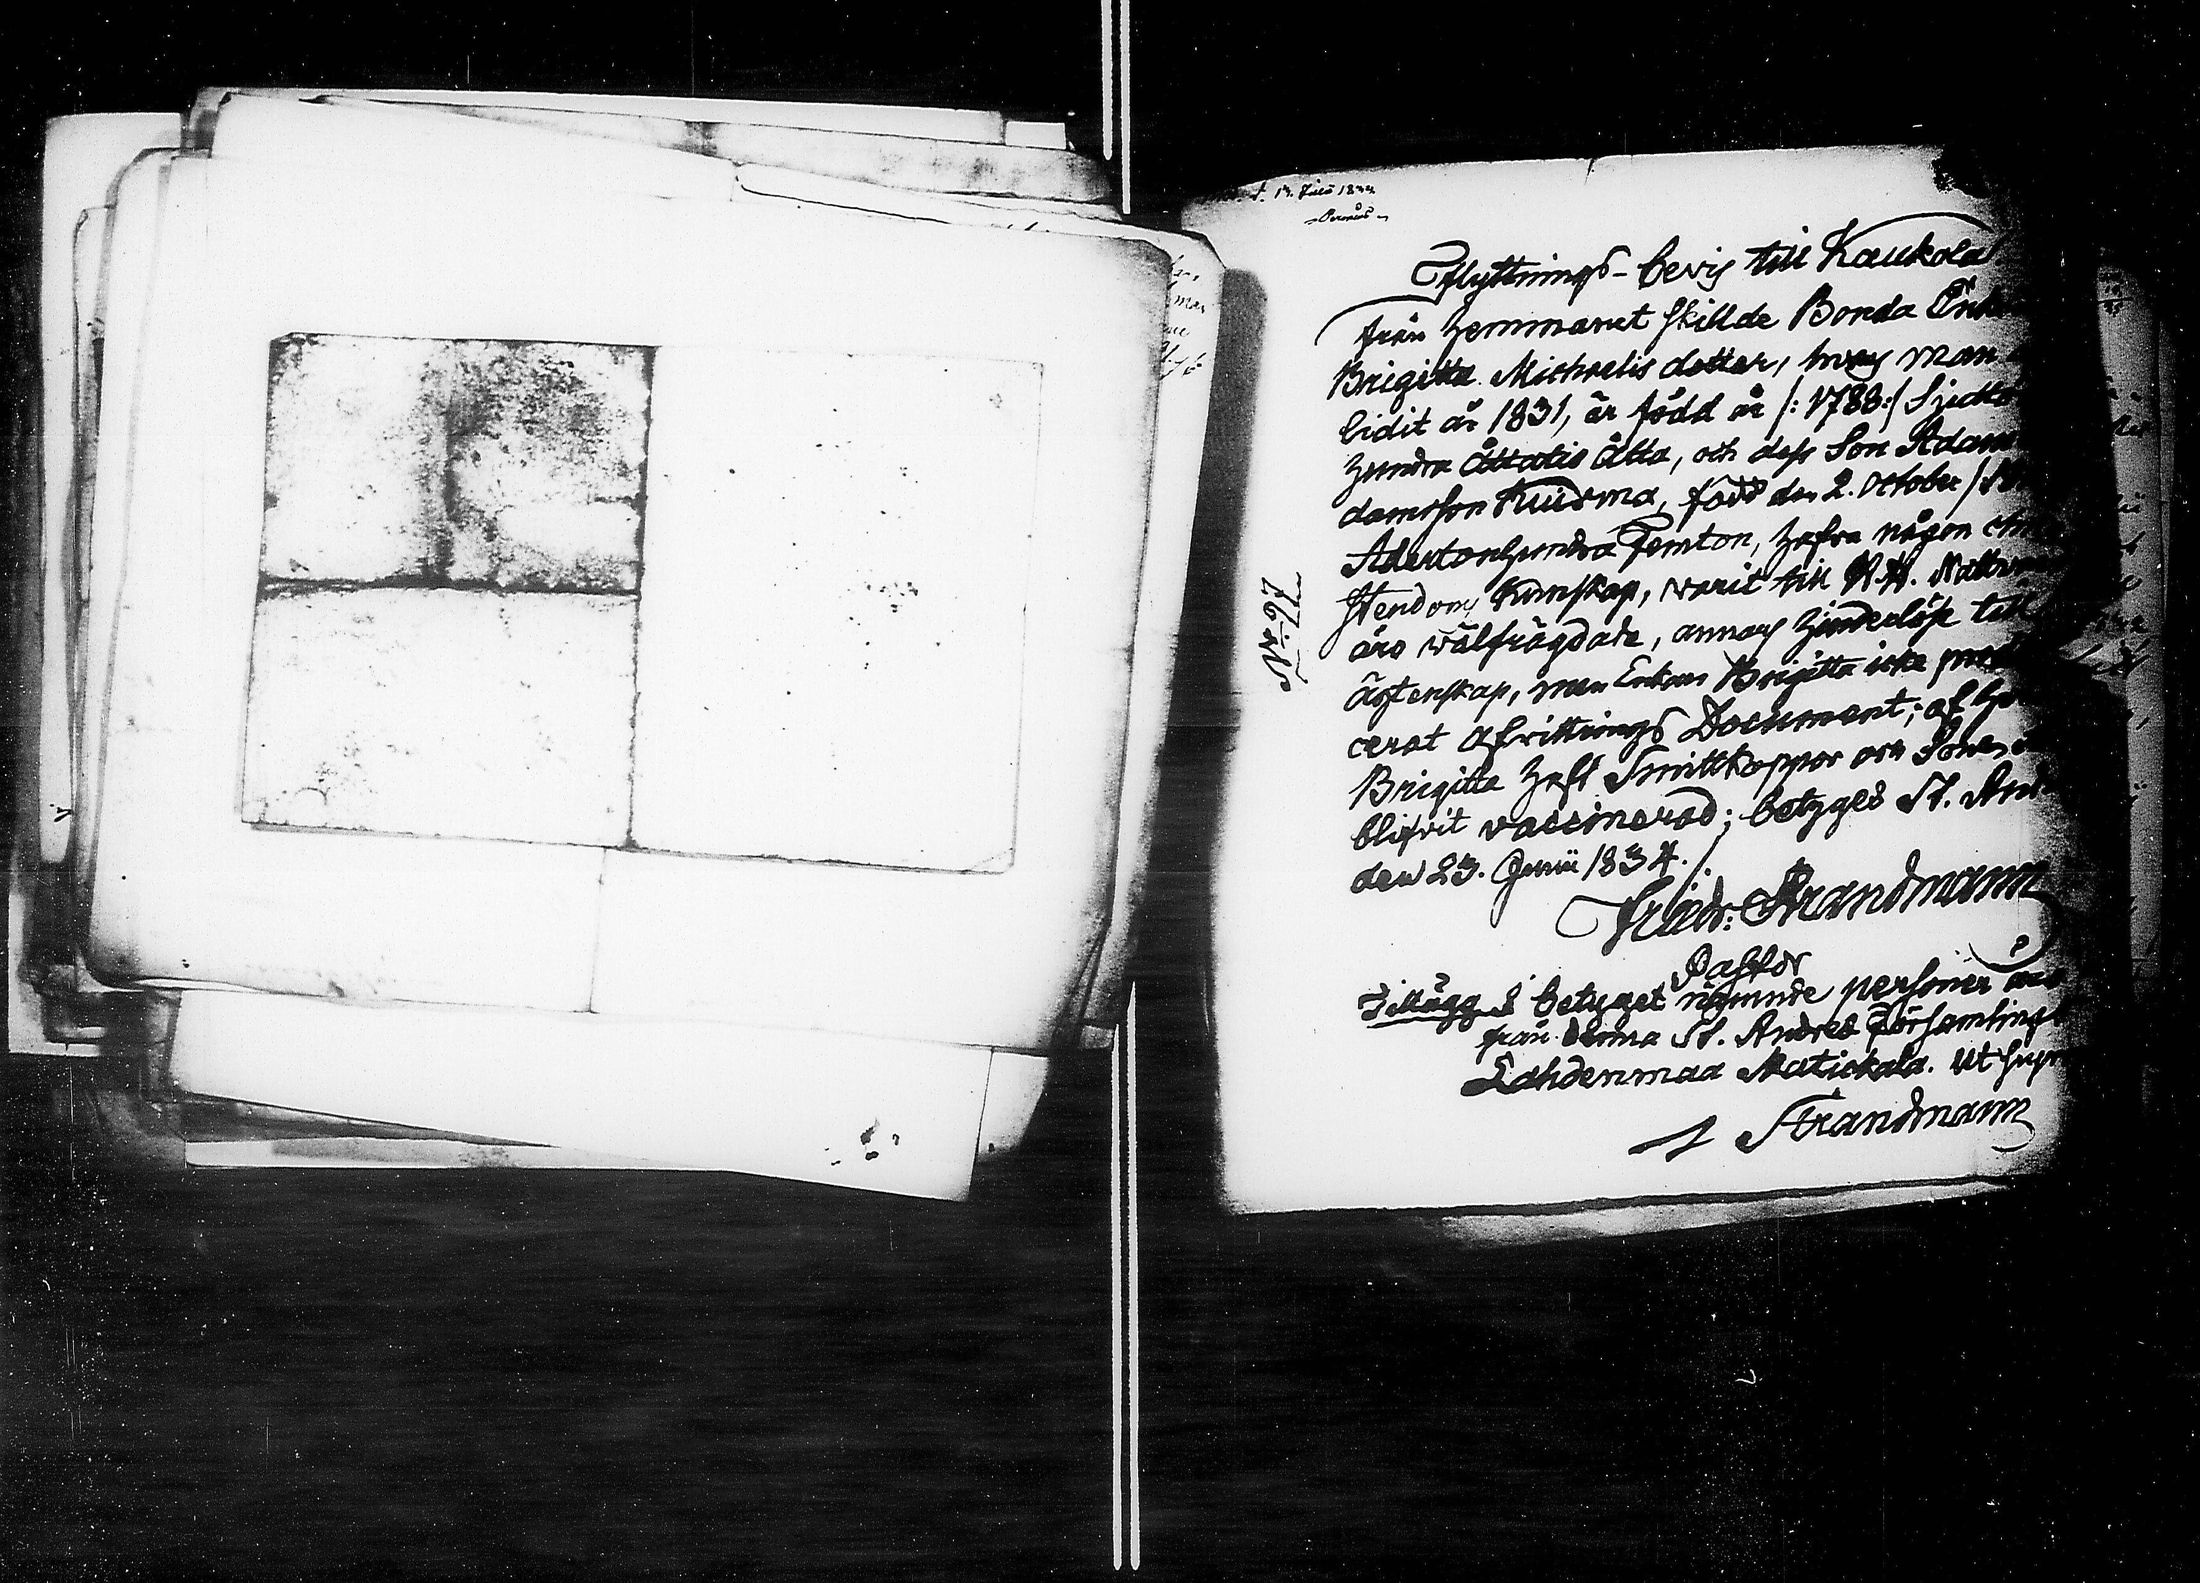 d. 13. Julii 1834
Flyttnings-bevis till Kaukola
från hemmanet skillde Bonda Enk
Brigitta Michaelis dotter, hvars man
lidit år 1831, är född år /: 1788:/ Sjutto
hundra åttatio åtta, och dess Son Adam
damsson Kuisma, född den 2. October /
Adertonhundra Femton, hafva någon chri
stendoms kunskap, varit till H. H. Nattvard
äro välfrägdade, annars hinderlöse till
ägtenskap, men Enkan Brigitta icke prod
cerat afvittrings Document; af h
Brigitta haft Smittkoppor och Sonen
blifvit vaccinerad; betyges St. And
den 23. Junii 1834.
Friedr: Strandmann
Pastor
No 97
Tillägg. I betyget nämnde personer äro
från denna St. Andreæ Församlings
Lahdenmaa Matickala. Ut supr
Strandmann